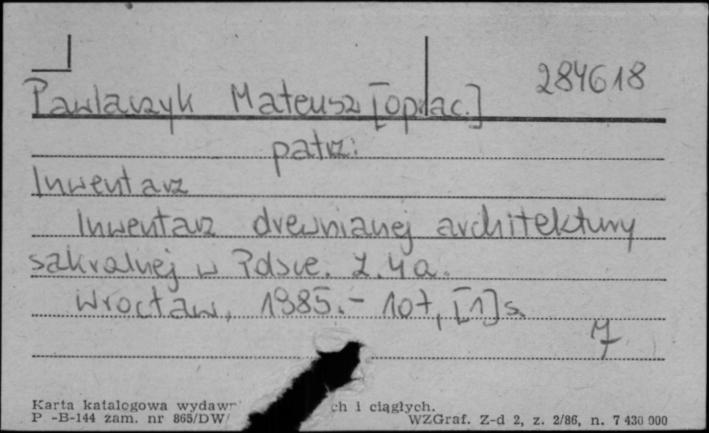 284618
Pawlaczyk Mateusz [oprac.]
patrz:
Inwentarz
Inwentarz drewnianej architektury
sakralnej w Polsce. Z. 4a.
Wrocław, 1985.- 107, [1] s.
Karta katalogowa wydawn ch i ciągłych.
P -B-144 zam. nr 865/DW/ WZGraf. Z-d 2, z. 2/86, n. 7 430 000